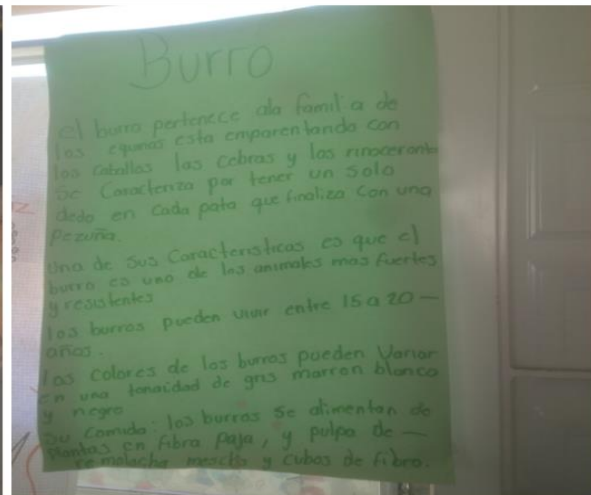 Burro
el burro pertenece ala familia de
los equinas esta emparentando con
los caballos las cebras y los rinoceronte
se Caracteriza por tener un solo
dedo en cada pata que finaliza con una
pezuña.
Una de sus Caracteristicas es que el
burro es uno de los animales mas fuertes
y resistentes
los burros pueden vivir entre 15 a 20 —
años.
los colores de los burros pueden Variar
en una tonaidad de gris marron blanco
y negro
Su Comida: los burros se alimentan de
plantas en fibra paja, y pulpa de —
remolacha mescla y cubos de fibra.